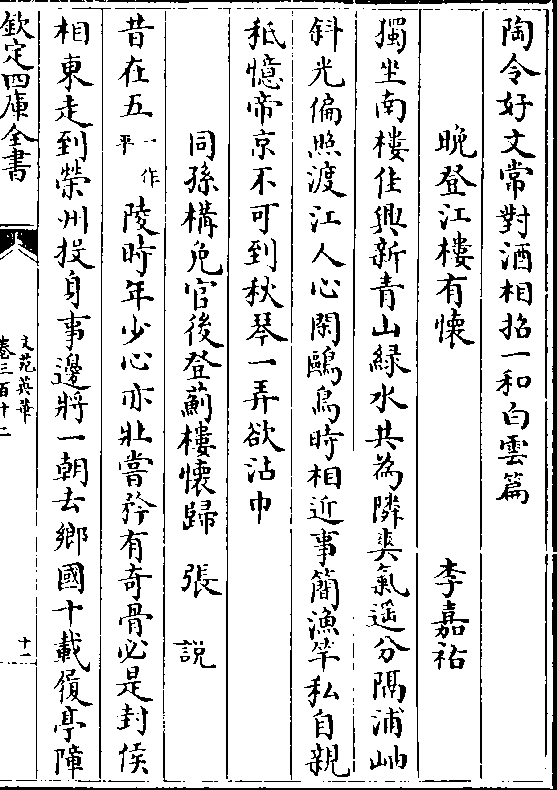 陶令好文常對酒相招一和白雲篇
晩登江樓有懷 李嘉祐
獨坐南樓佳興新青山緑水共為隣爽氣遥分隔浦岫
斜光偏照渡江人心閑鷗鳥時相近事簡漁竿私自親
秖憶帝京不可到秋琴一弄欲沾巾
同孫構免官後登薊樓懷歸 張說
昔在五一作平陵時年少心亦壯嘗矜有奇骨必是封侯
相東走到榮州投身事邊將一朝去鄉國十載履亭障
欽定四庫全書
文苑英華
卷三百十二
十一